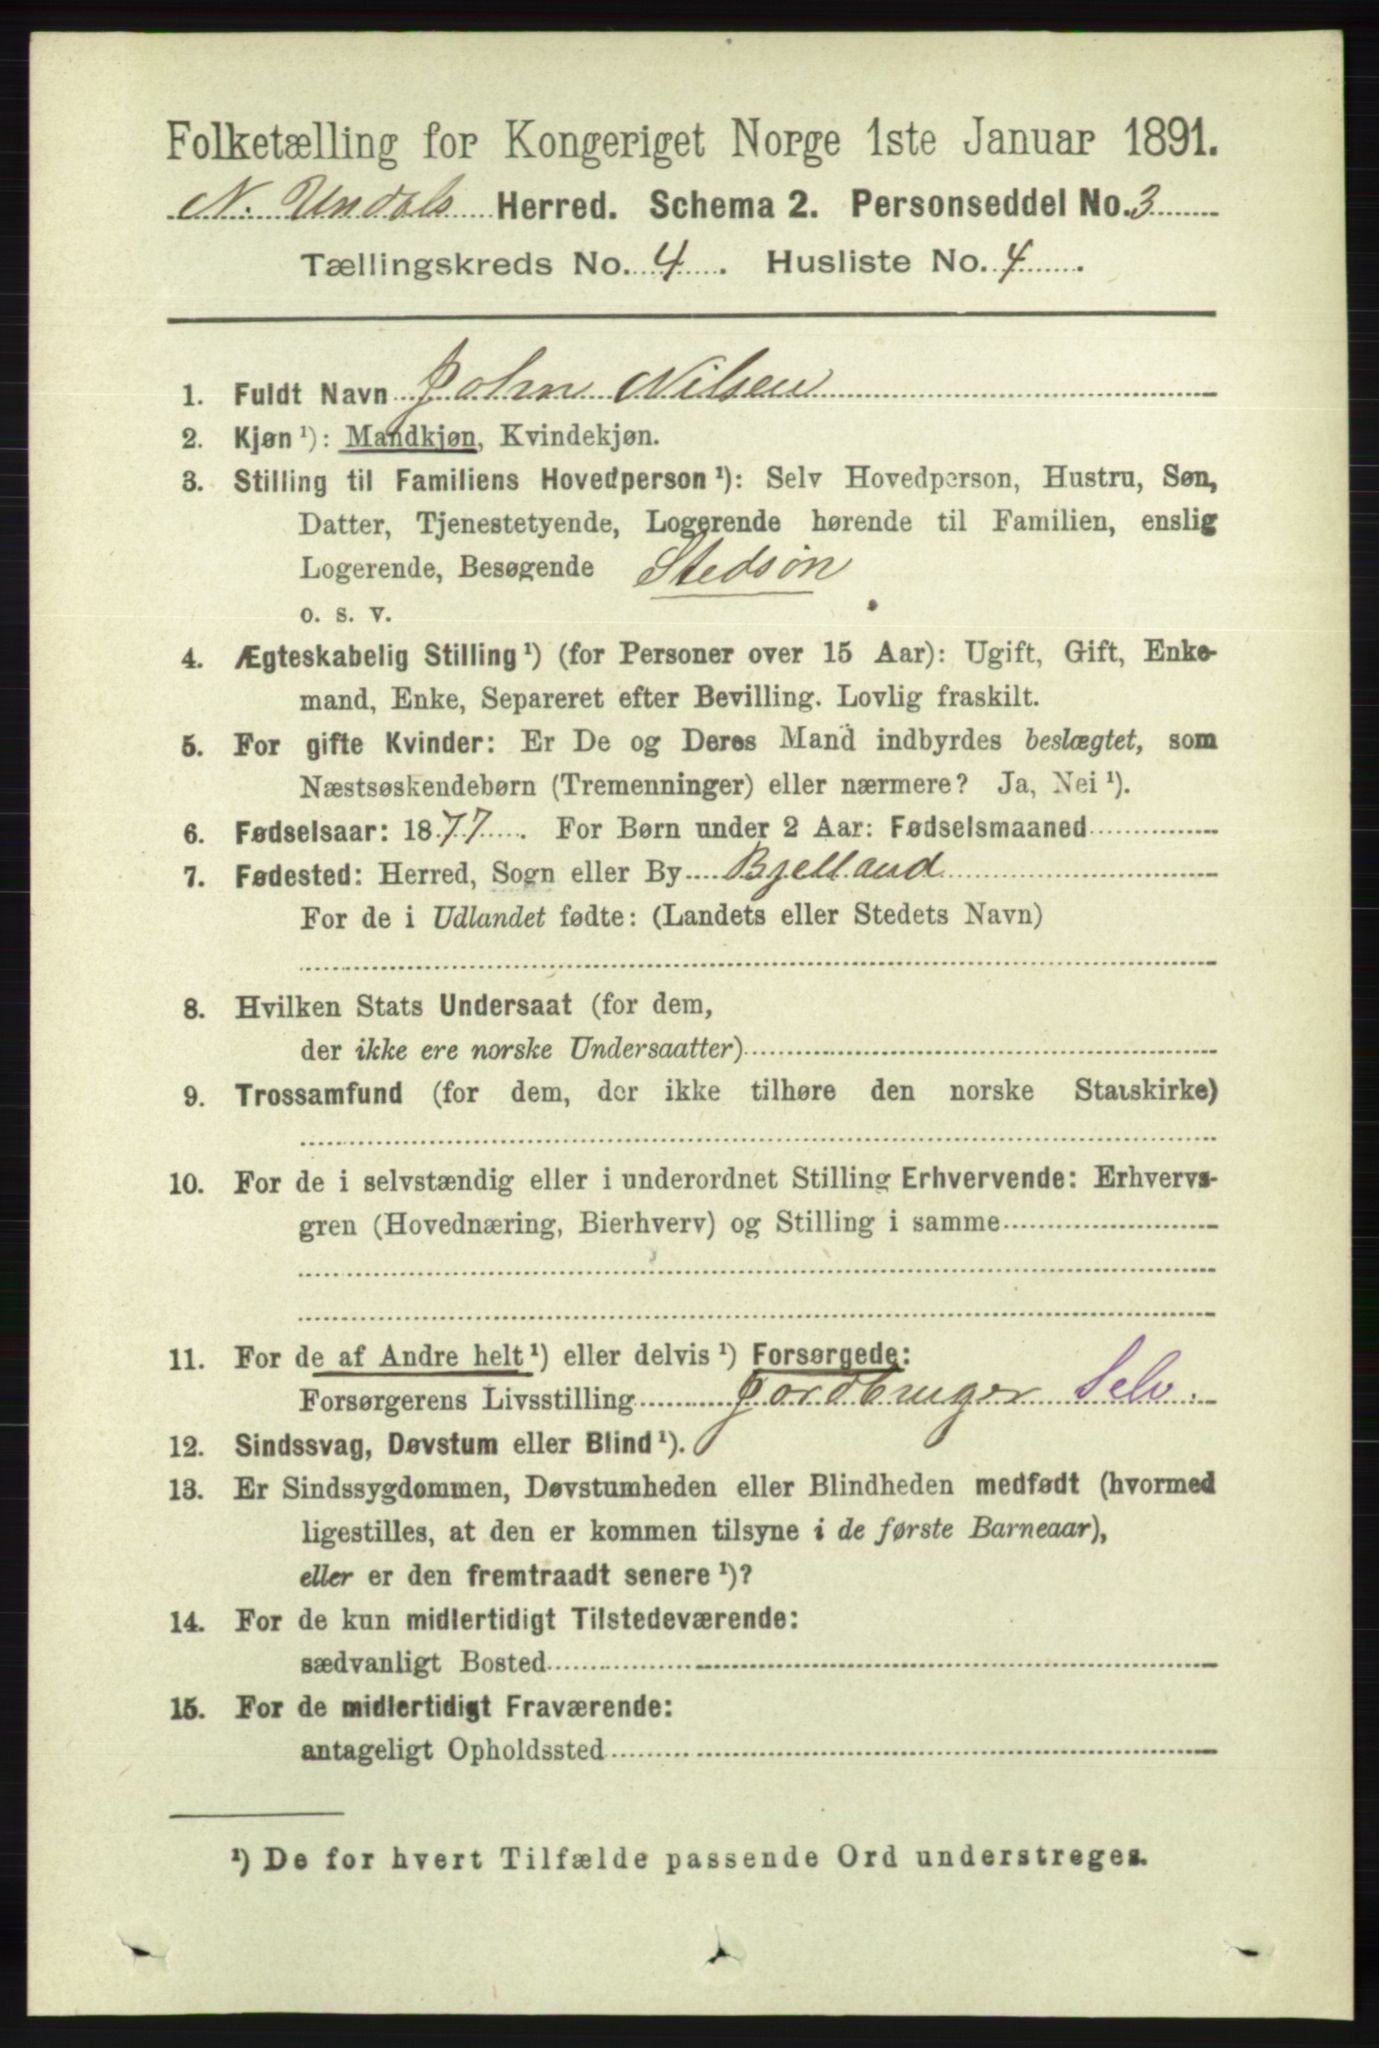 Folketælling for Kongeriget Norge 1ste Januar 1891.
N. Undals Herred. Schema 2. Personseddel No. 3
Tællingskreds No. 4. Husliste No. 4.
1. Fuldt Navn John Nilsen
2. Kjøn ¹): Mandkjøn, Kvindekjøn.
3. Stilling til Familiens Hovedperson ¹): Selv Hovedperson, Hustru, Søn,
Datter, Tjenestetyende, Logerende hørende til Familien, enslig
Logerende, Besøgende Stedsøn
o. s. v.
4. Ægteskabelig Stilling ¹) (for Personer over 15 Aar): Ugift, Gift, Enke-
mand, Enke, Separeret efter Bevilling. Lovlig fraskilt.
5. For gifte Kvinder: Er De og Deres Mand indbyrdes beslægtet, som
Næstsøskendebørn (Tremenninger) eller nærmere? Ja, Nei ¹).
6. Fødselsaar: 1877. For Børn under 2 Aar: Fødselsmaaned
7. Fødested: Herred, Sogn eller By Bjelland
For de i Udlandet fødte: (Landets eller Stedets Navn)
8. Hvilken Stats Undersaat (for dem,
der ikke ere norske Undersaatter)
9. Trossamfund (for dem, der ikke tilhøre den norske Statskirke)
10. For de i selvstændig eller i underordnet Stilling Erhvervende: Erhvervs-
gren (Hovednæring, Bierhverv) og Stilling i samme
11. For de af Andre helt ¹) eller delvis ¹) Forsørgede:
Forsørgerens Livsstilling Jordbruger Selv.
12. Sindssvag, Døvstum eller Blind ¹).
13. Er Sindssygdommen, Døvstumheden eller Blindheden medfødt (hvormed
ligestilles, at den er kommen tilsyne i de første Barneaar),
eller er den fremtraadt senere ¹)?
14. For de kun midlertidigt Tilstedeværende:
sædvanligt Bosted
15. For de midlertidigt Fraværende:
antageligt Opholdssted
¹) De for hvert Tilfælde passende Ord understreges.